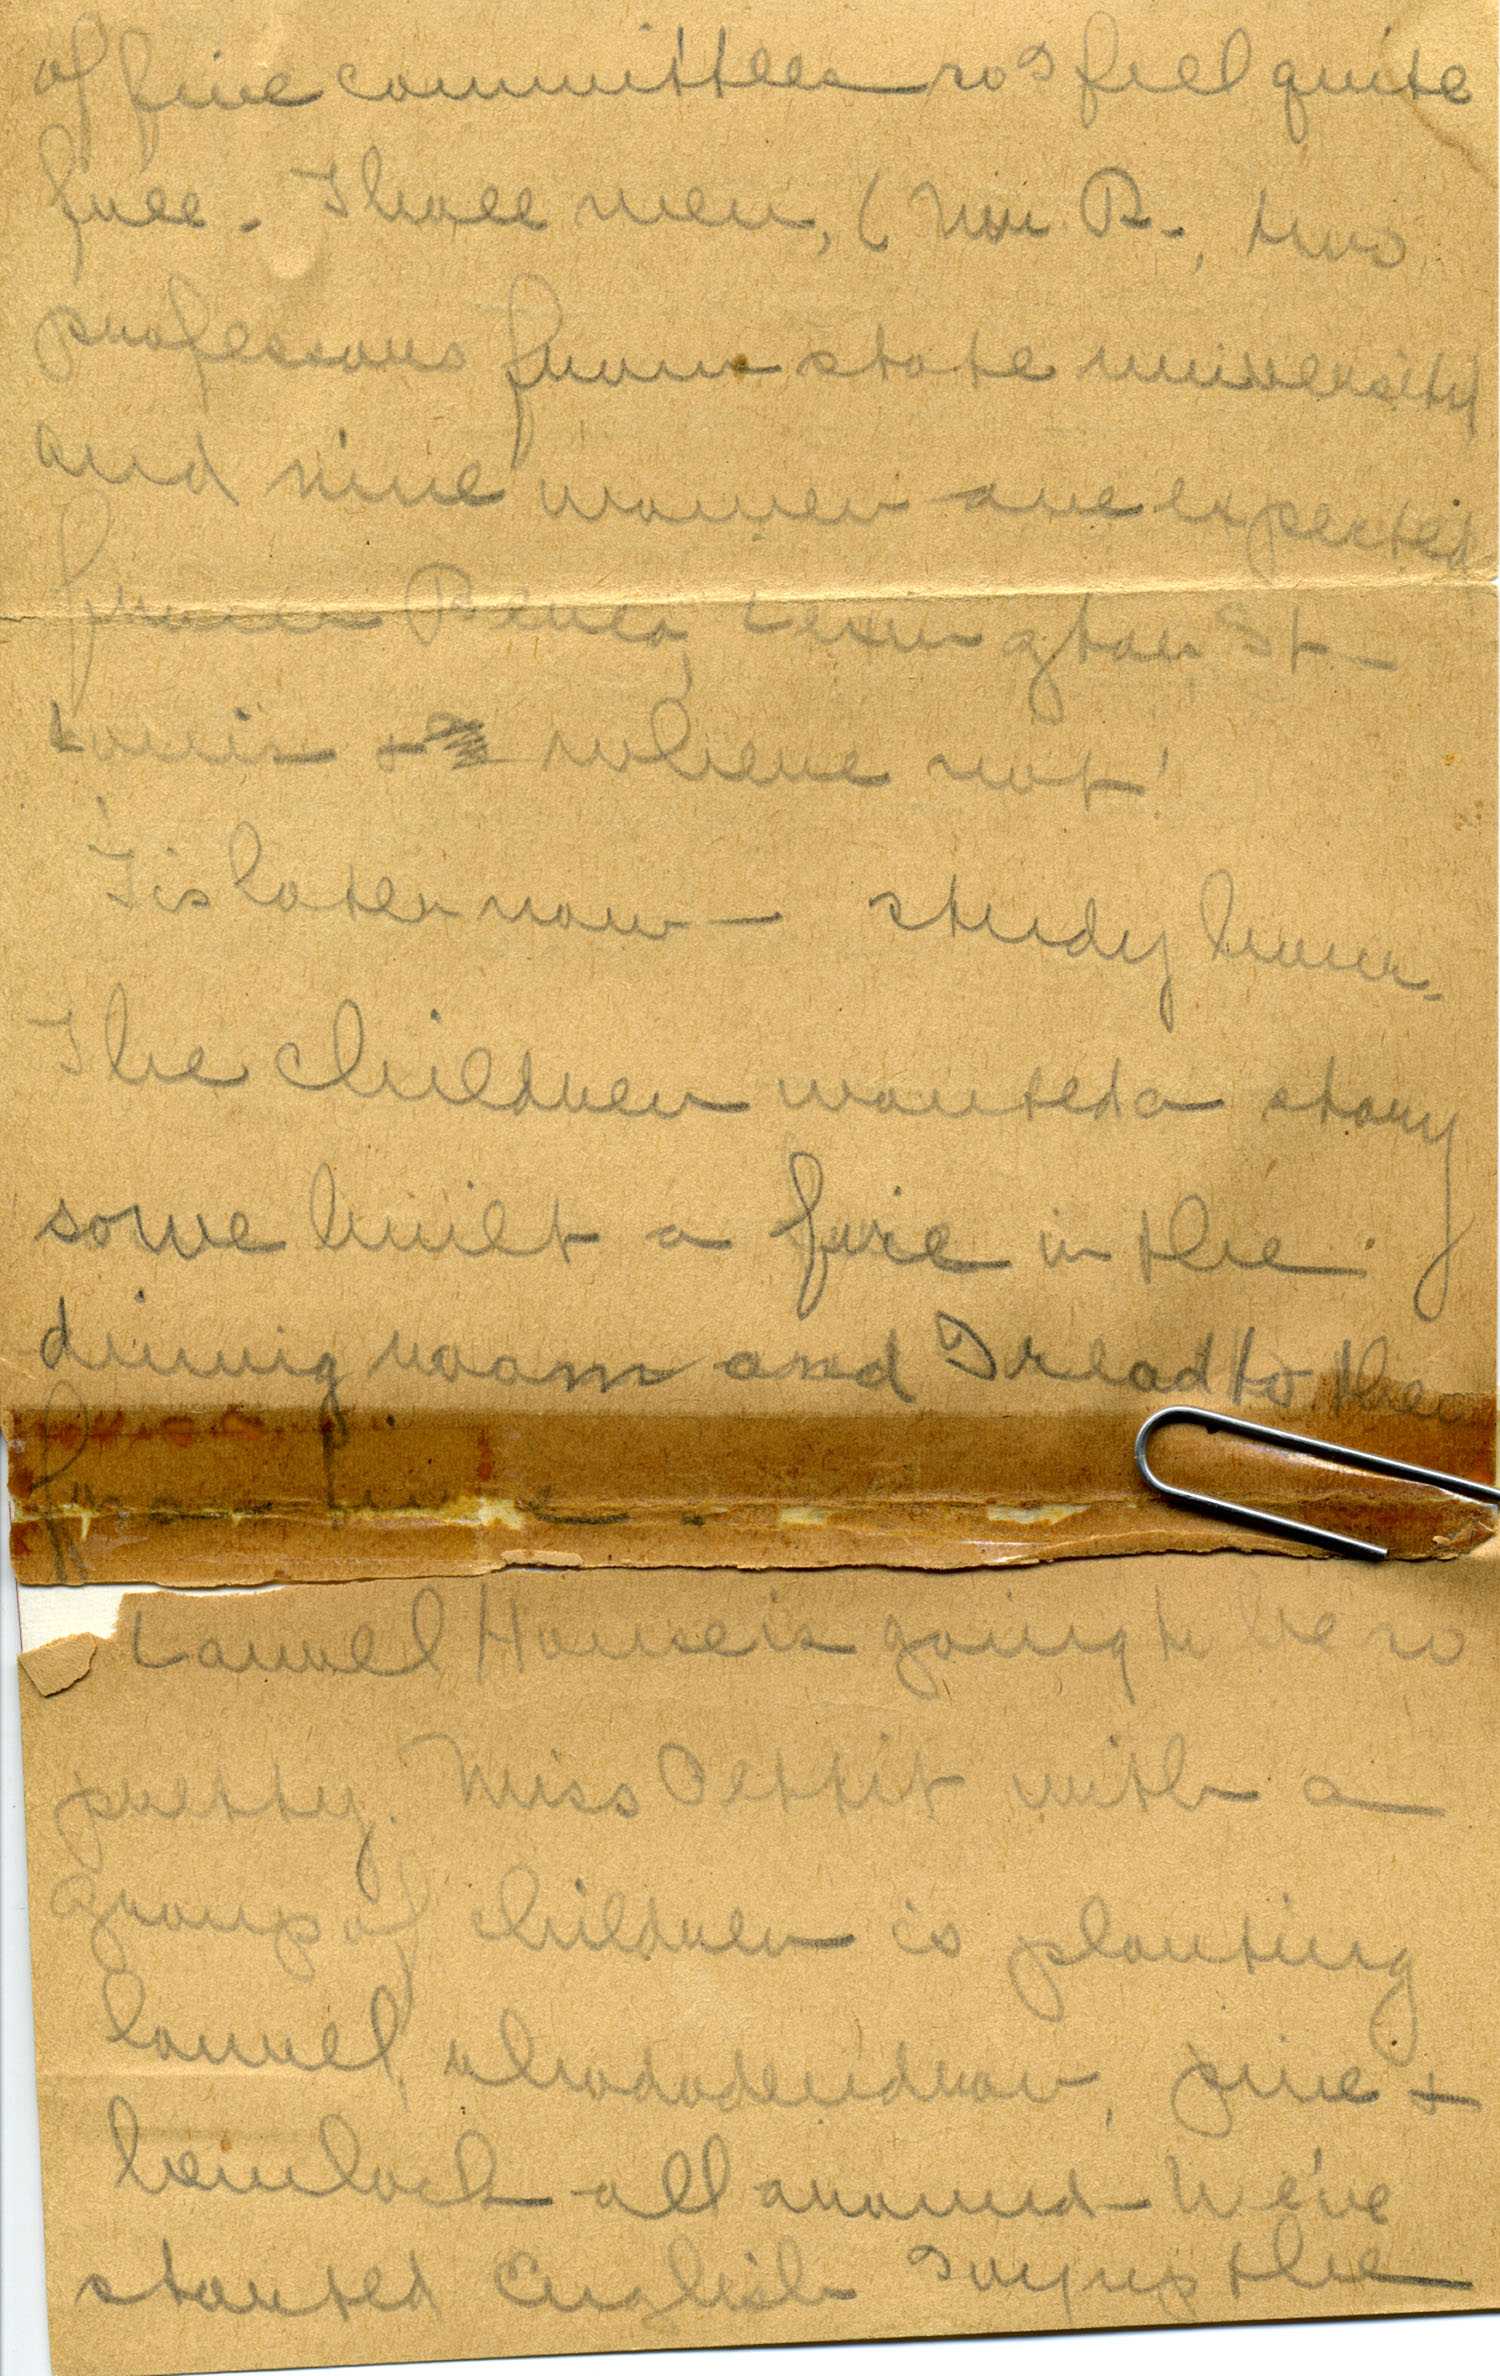 of five committees so I feel quite
free. Three men, ( Mr. R., two
professors from state university
and nine women are expected
from Berea, Lexington St.
Louis + where not!
'Tis later now — study hour.
The children wanted a story
some built a fire in the
dining room and I read to them
for a time.
Laurel House is going to be so
pretty. Miss Pettit with a
group of children is planting
laurel, rhododendron, pine +
hemlock all around - We've
started English Ivy up the